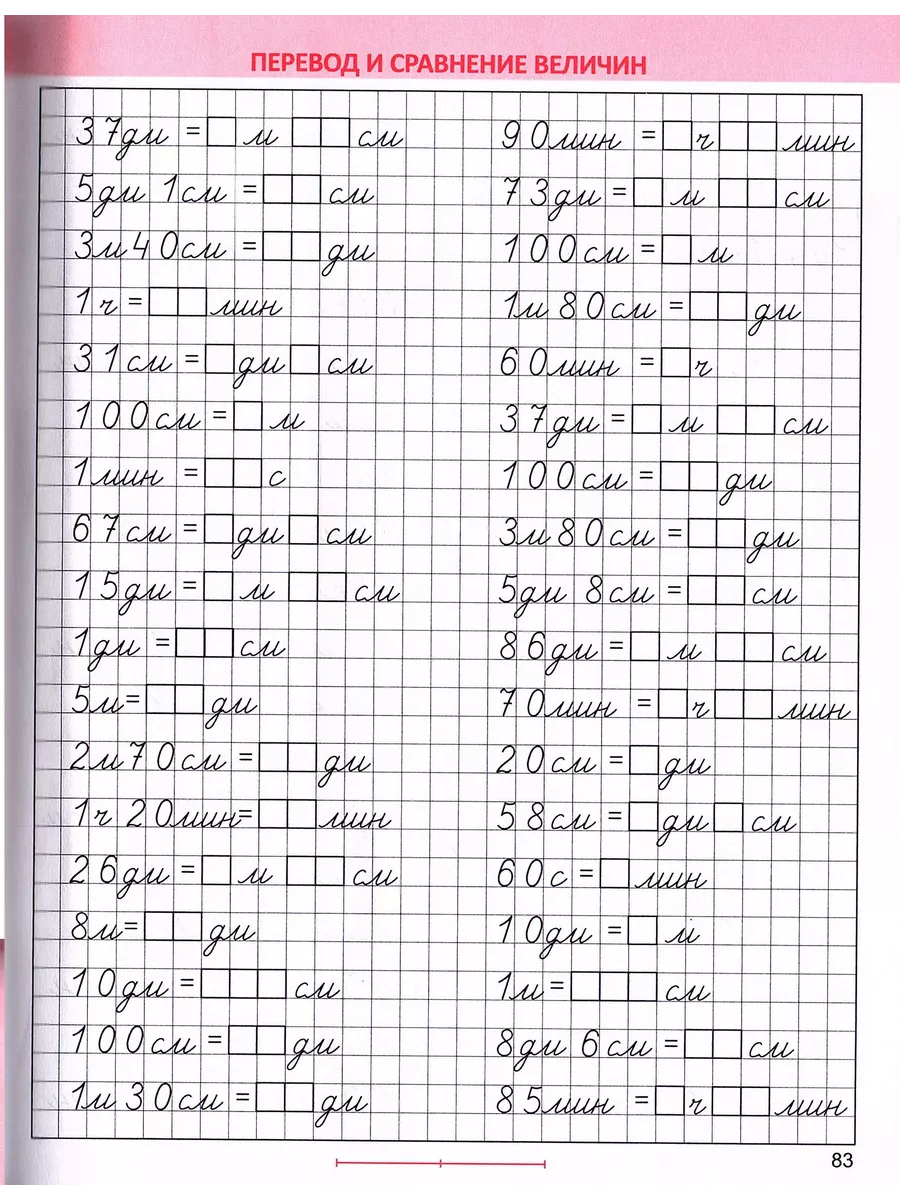 ПЕРЕВОД И СРАВНЕНИЕ ВЕЛИЧИН
37дм = □ м □□ см
5дм 1см = □□ см
3м40см = □□ дм
1ч = □□ мин
31см = □ дм □ см
100см = □ м
1мин = □□ с
67см = □ дм □ см
15дм = □ м □□ см
1дм = □□ см
5м= □□ дм
2м70см = □□ дм
1ч 20мин= □□ мин
26дм = □ м □□ см
8м= □□ дм
10дм = □□□ см
100см = □□ дм
1м30см = □□ дм
90мин = □ ч □□ мин
73дм = □ м □□ см
100см = □ м
1м80см = □□ дм
60мин = □ ч
37дм = □ м □□ см
100см = □□ дм
3м80см = □□ дм
5дм 8см = □□ см
86дм = □ м □□ см
70мин = □ ч □□ мин
20см = □ дм
58см = □ дм □ см
60с = □ мин
10дм = □ м
1м= □□□ см
8дм 6см = □□ см
85мин = □ ч □□ мин
83